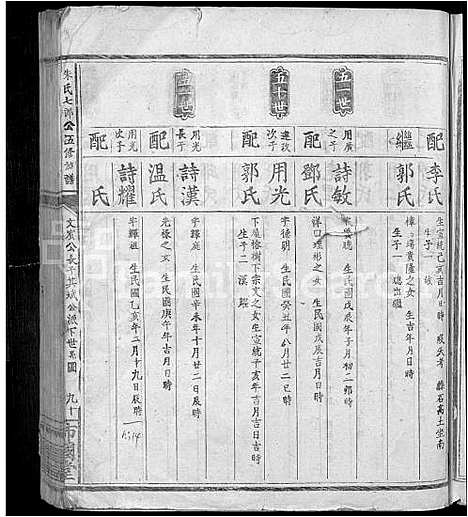 朱氏七郎公五修族譜
文炭公長子其斌公派下世系圖
九十
配李氏
生宣統己亥吉月日時 歿 氏考 縣石高土坐南
生子一
繼郭氏
樟 塲貴隆之女 生吉年月日時
生子一 聰出繼
五一世
用廣之子
詩敏
字 聰 生民國戊辰年子月初二卯時
配鄧氏
洋口 形之女 生民國戊辰吉月日時
五十世
達政次子
用光
字德朗 生民國癸丑年八月廿二巳時
配郭氏
下屋榕樹下宗文之女生宣統辛亥年吉月吉日吉時
生子二 漢 耀
五一世
用光長子
詩漢
字輝庭 生民國辛未年十月廿二日辰時
配温氏
光祿之女 生民國庚午年吉月日時
用光次子
詩耀
字輝祖 生民國乙亥年二月十九日辰時
配 氏